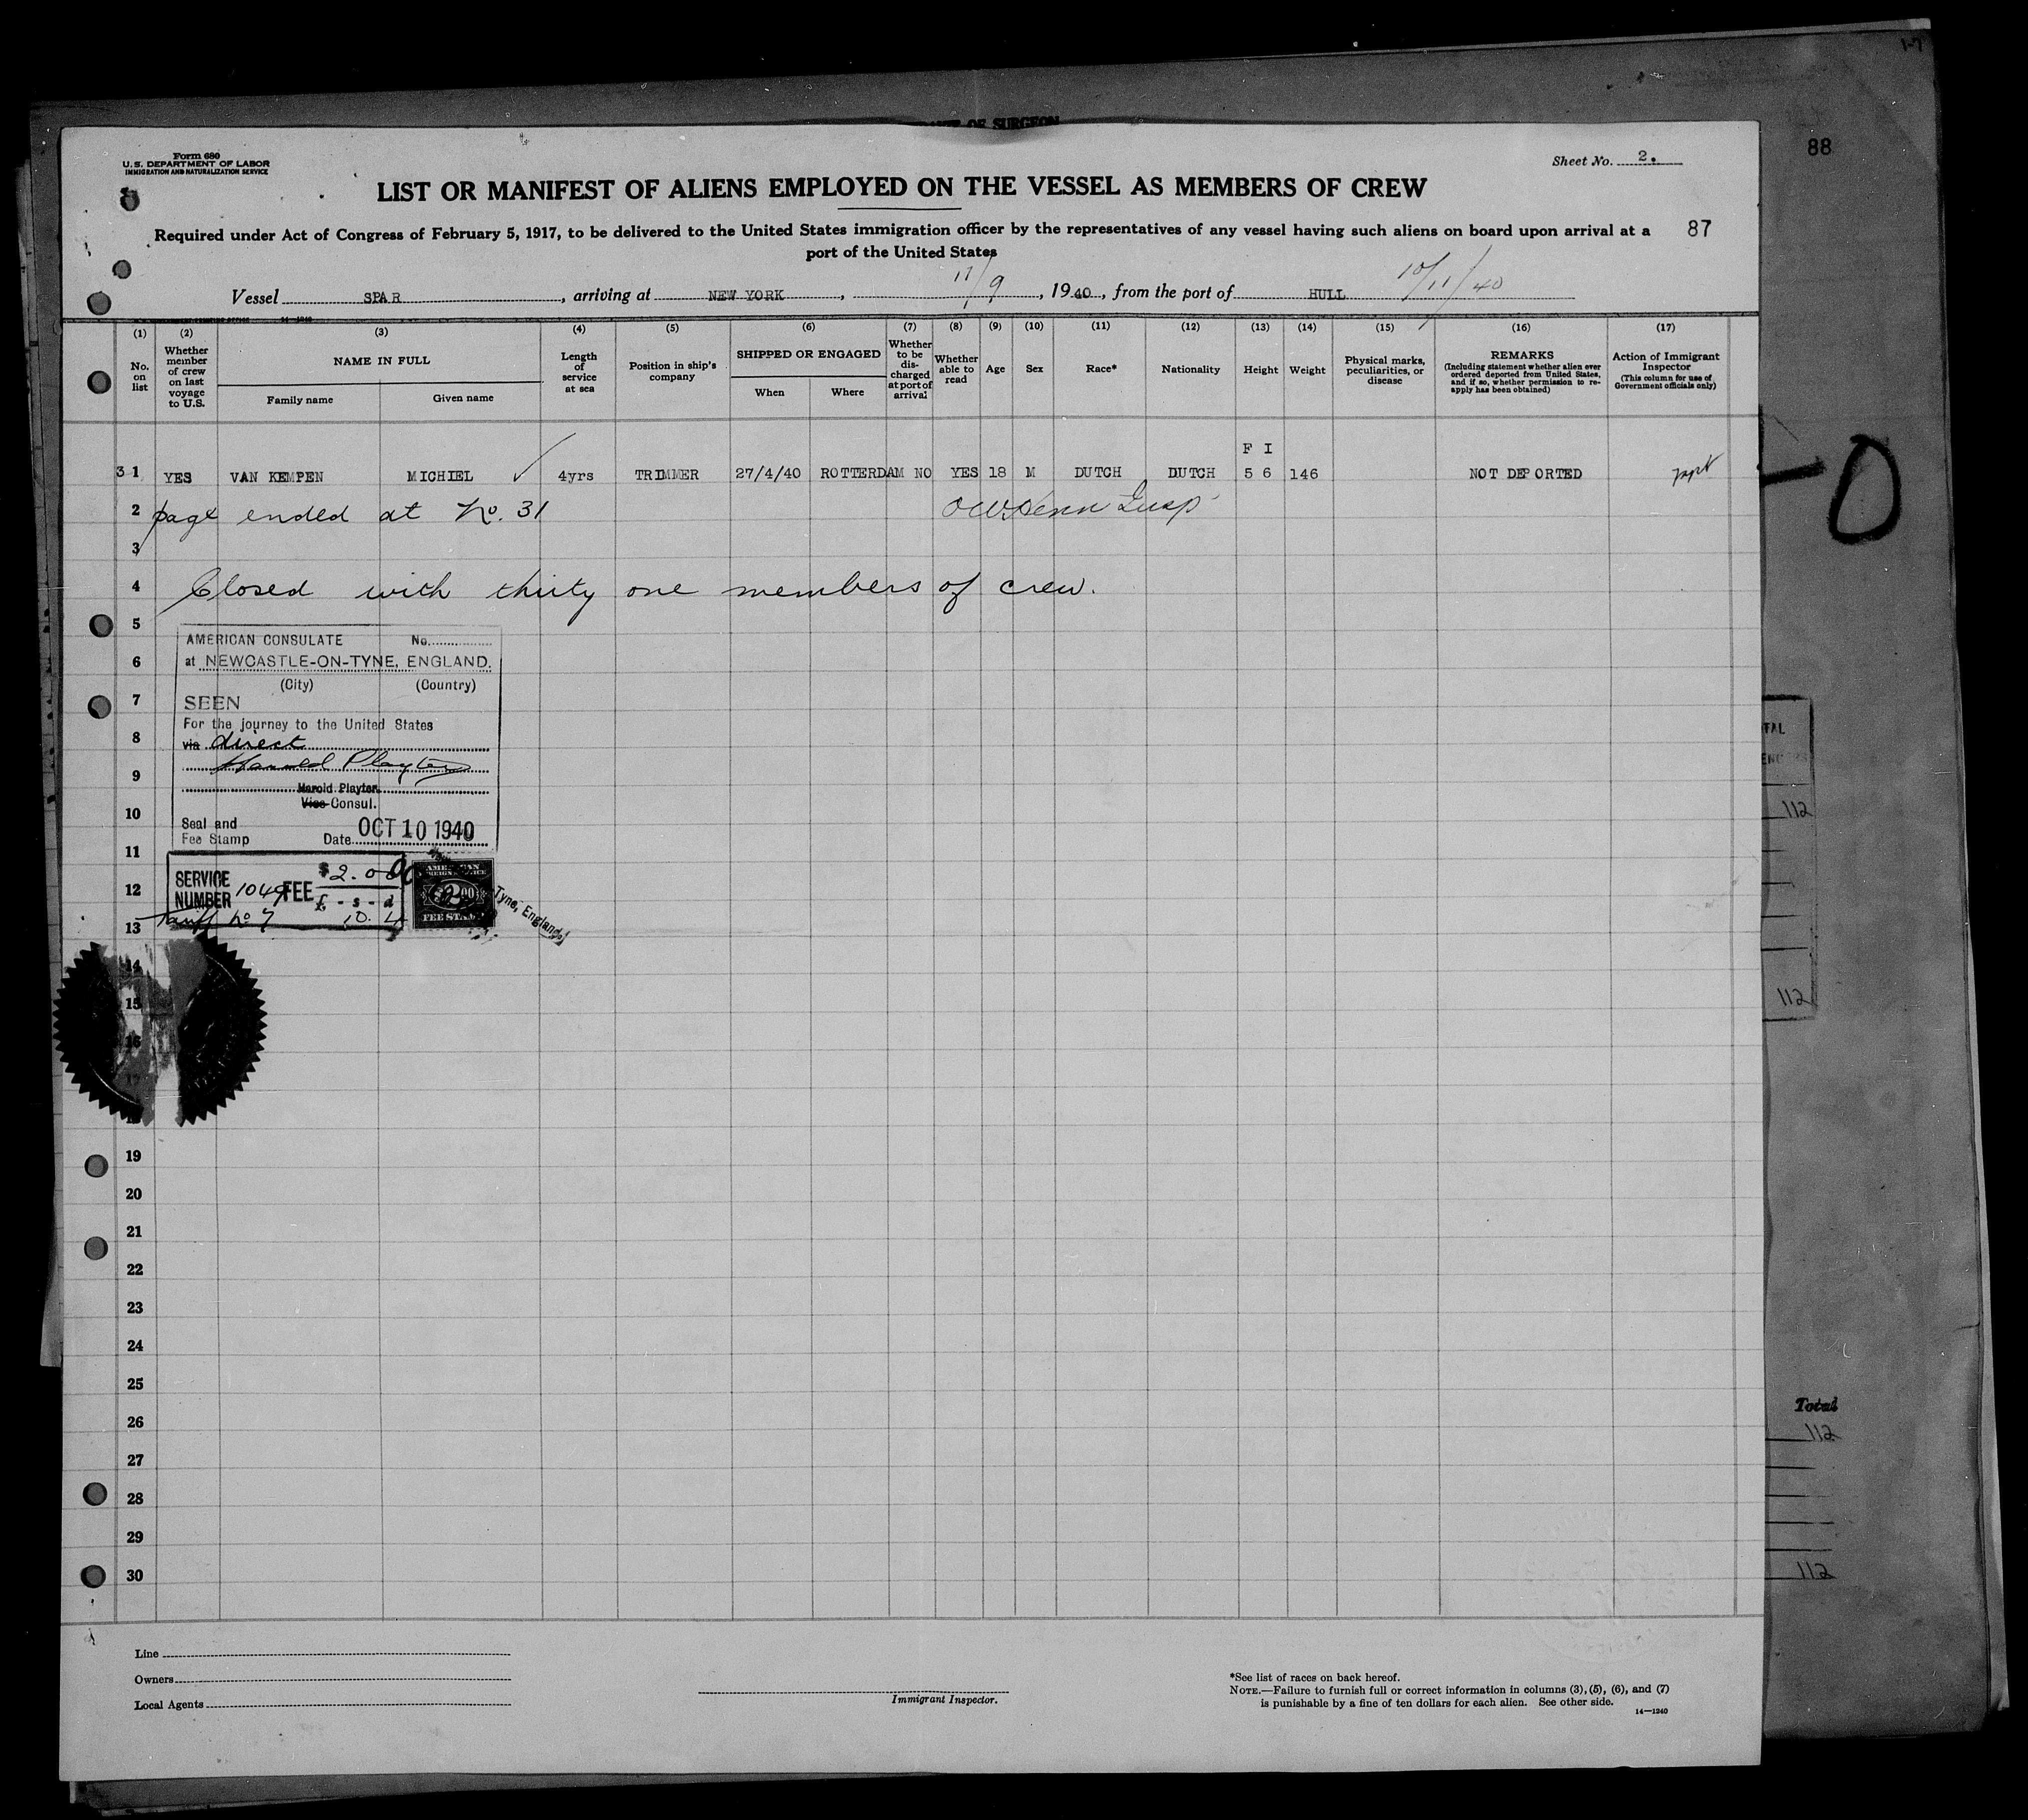 1-7
OF SURGEON
88
Form 680
U.S. DEPARTMENT OF LABOR
IMMIGRATION AND NATURALIZATION SERVICE
Sheet No. 2.
LIST OR MANIFEST OF ALIENS EMPLOYED ON THE VESSEL AS MEMBERS OF CREW
Required under Act of Congress of February 5, 1917, to be delivered to the United States immigration officer by the representatives of any vessel having such aliens on board upon arrival at a
port of the United States
87
Vessel SPAR, arriving at NEW YORK, 11/9, 1940, from the port of HULL 10/11/40
14-1240
(1) (2) (3) (4) (5) (6) (7) (8) (9) (10) (11) (12) (13) (14) (15) (16) (17)
No. on list
Whether member of crew on last voyage to U.S.
NAME IN FULL
Family name
Given name
Length of service at sea
Position in ship's company
SHIPPED OR ENGAGED
When
Where
Whether to be discharged at port of arrival
Whether able to read
Age
Sex
Race*
Nationality
Height
Weight
Physical marks, peculiarities, or disease
REMARKS
(Including statement whether alien ever ordered deported from United States, and if so, whether permission to reapply has been obtained)
Action of Immigrant Inspector
(This column for use of Government officials only)
F I
31 YES VAN KEMPEN MICHIEL ✓ 4yrs TRIMMER 27/4/40 ROTTERDAM NO YES 18 M DUTCH DUTCH 5 6 146 NOT DEPORTED
2 page ended at No. 31
3
4 Closed with thirty one members of crew.
5
AMERICAN CONSULATE No.
6 at NEWCASTLE-ON-TYNE, ENGLAND.
(City) (Country)
7 SEEN
For the journey to the United States
8 via direct
9 Harold Playter
Harold Playter.
10 Vice Consul.
Seal and
Fee Stamp Date OCT 10 1940
11
12 SERVICE NUMBER 1049 FEE $2.00
£ - s - d
13 Tariff No 7 10. 4
AMERICAN FOREIGN SERVICE
$2.00
FEE STAMP
Tyne, England
14
15
16
17
19
20
21
22
23
24
25
26
27
28
29
30
112
112
Total
112
112
Line
Owners
Local Agents
Immigrant Inspector.
*See list of races on back hereof.
NOTE.—Failure to furnish full or correct information in columns (3), (5), (6), and (7)
is punishable by a fine of ten dollars for each alien. See other side.
14—1240